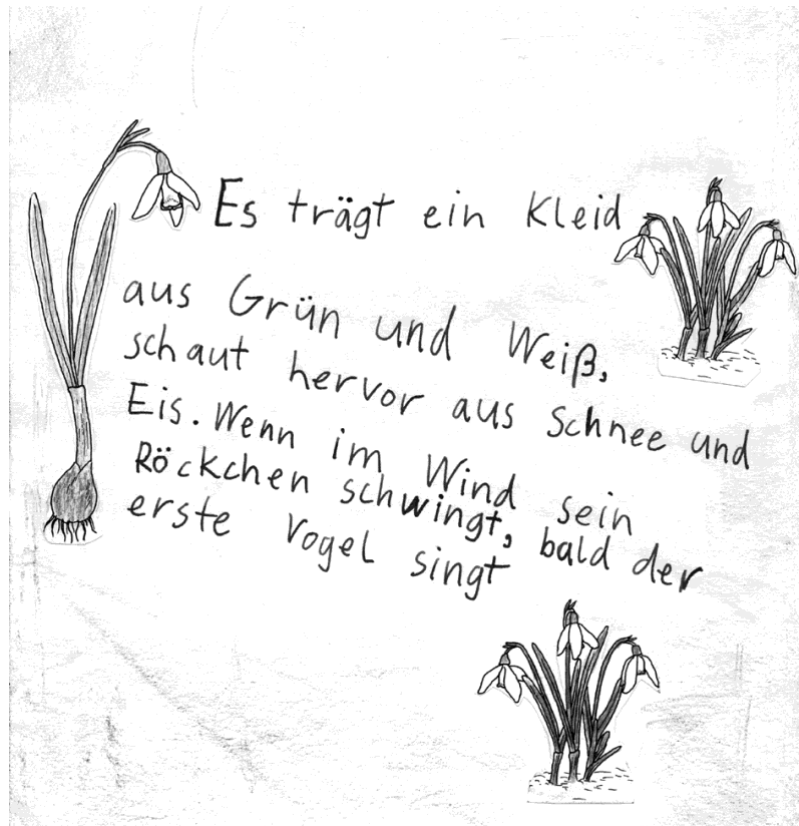 Es trägt ein Kleid
aus Grün und Weiß,
schaut hervor aus Schnee und
Eis. Wenn im Wind sein
Röckchen schwingt, bald der
erste Vogel singt